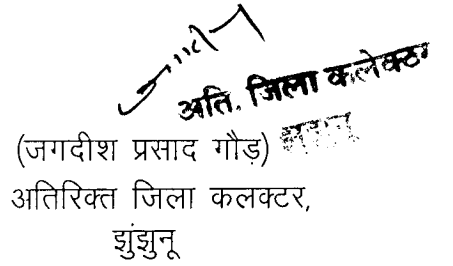 अति. जिला कलेक्टर
झुंझुनू
(जगदीश प्रसाद गौड़)
अतिरिक्त जिला कलक्टर,
झुंझुनू